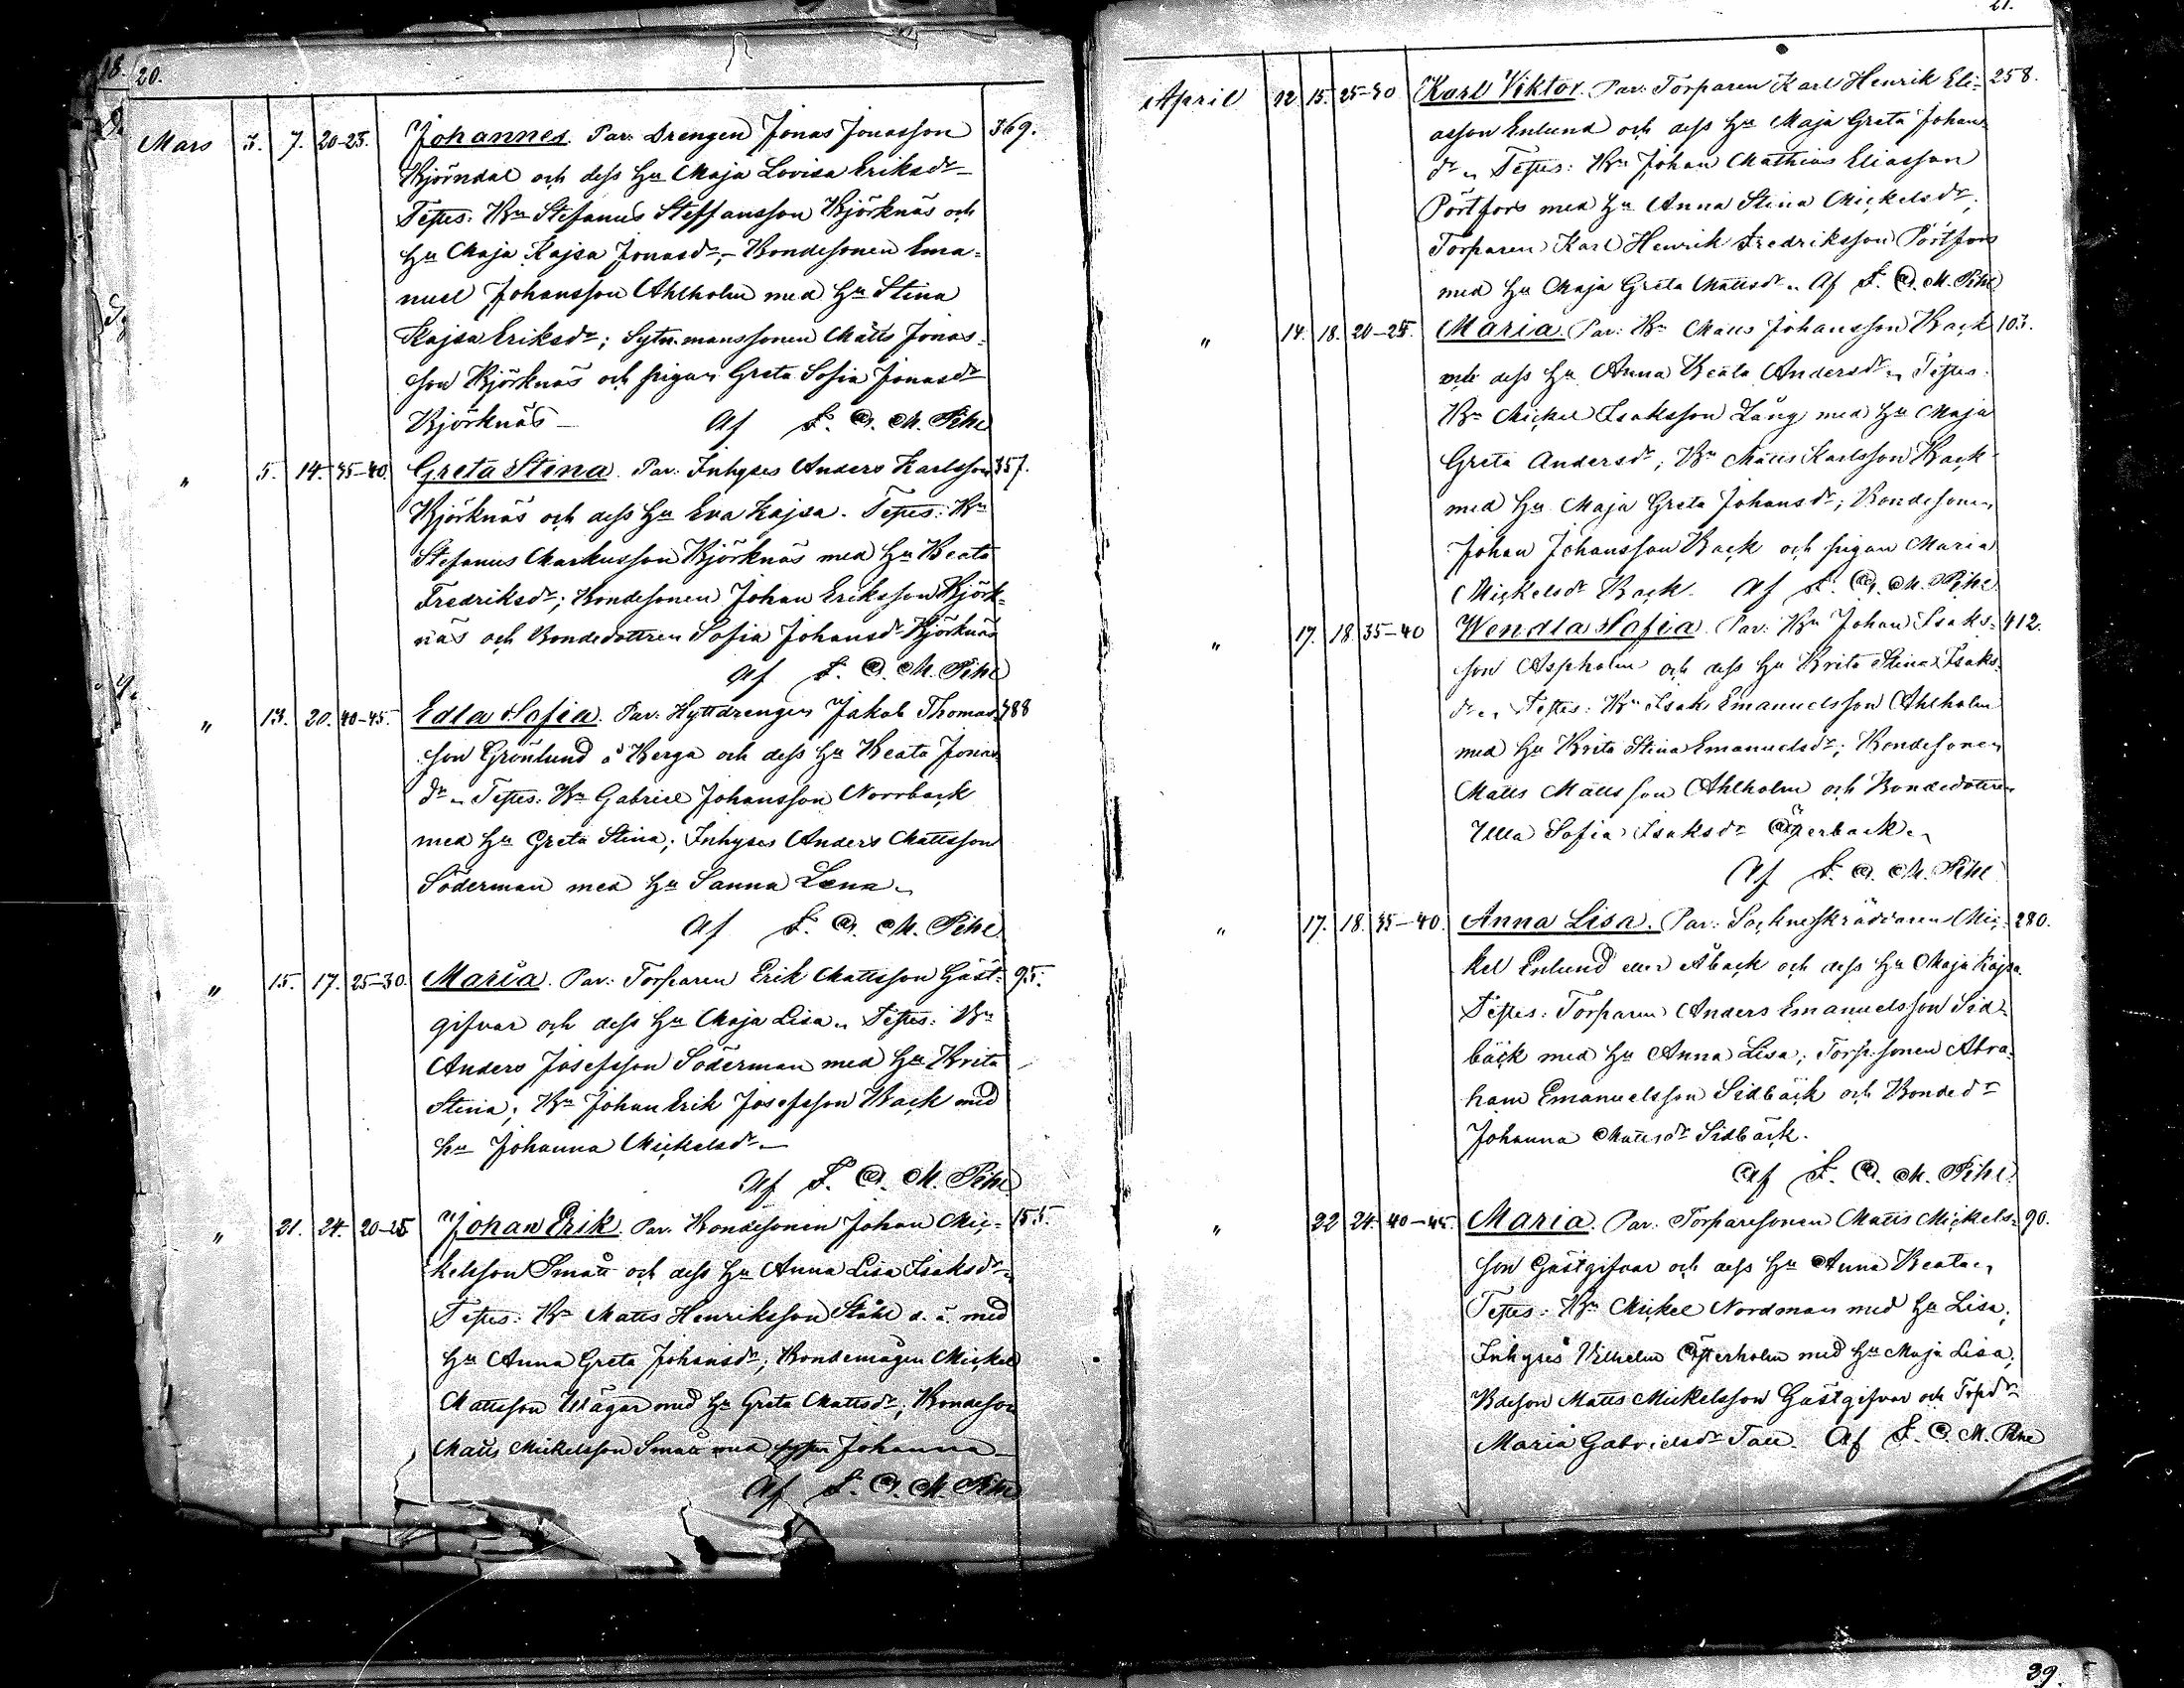 18.
20.
Mars 3. 7. 20-25. Johannes. Par: Drengen Jonas Jonasson 369.
Björndal och dess Hu Maja Lovisa Eriksdr
Testes: Bn Stefanus Steffansson Björknäs och
Hu Maja Kajsa Jonasdr, Bondesonen Ema=
nuel Johansson Ahlholm med Hu Stina
Kajsa Eriksdr; Sytn.manssonen Matts Jonas=
son Björknäs och pigan Greta Sofia Jonasdr
Björknäs Af F. O. M. Pihl
" 5. 14. 35-40. Greta Stina. Par: Inhyses Anders Karlsson 357.
Björknäs och dess Hu Eva Kajsa. Testes: Bn
Stefanus Markusson Björknäs med Hu Beata
Fredriksdr; Bondesonen Johan Eriksson Björk=
näs och Bondedottren Sofia Johansdr Björknäs
Af F. O. M. Pihl
" 13. 20. 40-45. Edla Sofia. Par: Hyttdrengen Jakob Thomas= 388
son Grönlund å Berga och dess Hu Beata Jonas
dr " Testes: Bn Gabriel Johansson Norrback
med Hu Greta Stina; Inhyses Anders Mattsson
Söderman med Hu Sanna Lena "
Af F. O. M. Pihl
" 15. 17. 25-30. Maria. Par: Torparen Erik Mattsson Gäst= 95.
gifvar och dess Hu Maja Lisa " Testes: Bn
Anders Josefsson Söderman med Hu Brita
Stina; Bn Johan Erik Josefsson Back med
hu Johanna Mickelsdr
Af F. O. M. Pihl
" 21. 24. 20-25 Johan Erik. Par. Bondesonen Johan Mic= 155.
kelsson Smått och dess Hu Anna Lisa Isaksdr
Testes: Bn Matts Henriksson Ståhl d. ä. med
Hu Anna Greta Johansdr; Bondemågen Mickel
Mattsson med Hu Greta Mattsdr; Bondeson
Matts Mickelsson Smått med Johanna
Af F. O. M. Pihl
21.
April 12 15. 25-30 Karl Viktor. Par: Torparen Karl Henrik Eli= 258.
asson Enlund och dess Hu Maja Greta Johans
dr " Testes: Bn Johan Mathias Eliasson
Pörtfors med Hu Anna Stina Mickelsdr;
Torparen Karl Henrik Fredriksson Pörtfors
med Hu Maja Greta Mattsdr " Af F. O. M. Pihl
" 14. 18. 20-25. Maria. Par: Bn Matts Johansson Back 103.
och dess Hu Anna Beata Andersdr " Testes:
Bn Mickel Isaksson Lång med Hu Maja
Greta Andersdr; Bn Matts Karlsson Back
med Hu Maja Greta Johansdr; Bondesonen
Johan Johansson Back och pigan Maria
Mickelsdr Back. Af F. O. M. Pihl
" 17. 18. 35-40 Wendla Sofia. Par: Bn Johan Isaks= 412.
son Aspholm och dess Hu Brita Stina Isaks=
dr " Testes: Bn Isak Emanuelsson Ahlholm
med Hu Brita Stina Emanuelsdr; Bondesonen
Matts Mattsson Ahlholm och Bondedottren
Ulla Sofia Isaksdr Österback "
Af F. O. M. Pihl
" 17. 18. 35-40. Anna Lisa. Par: Sockneskräddaren Mic= 280.
kel Enlund eller Åback och dess Hu Maja Kajsa.
Testes: Torparen Anders Emanuelsson Sid=
bäck med Hu Anna Lisa; Torp.sonen Abra=
ham Emanuelsson Sidbäck och Bondedr
Johanna Mattsdr Sidbäck.
Af F. O. M. Pihl
" 22 24. 40-45. Maria. Par: Torparesonen Matts Mickels= 90.
son Gästgifvar och dess Hu Anna Beata "
Testes: Bn Mickel Nordman med Hu Lisa;
Inhyses Vilhelm Österholm med Hu Maja Lisa;
Bdeson Matts Mickelsson Gästgifvar och Torpdr
Maria Gabrielsdr Tall. Af F. O. M. Pihl
39.